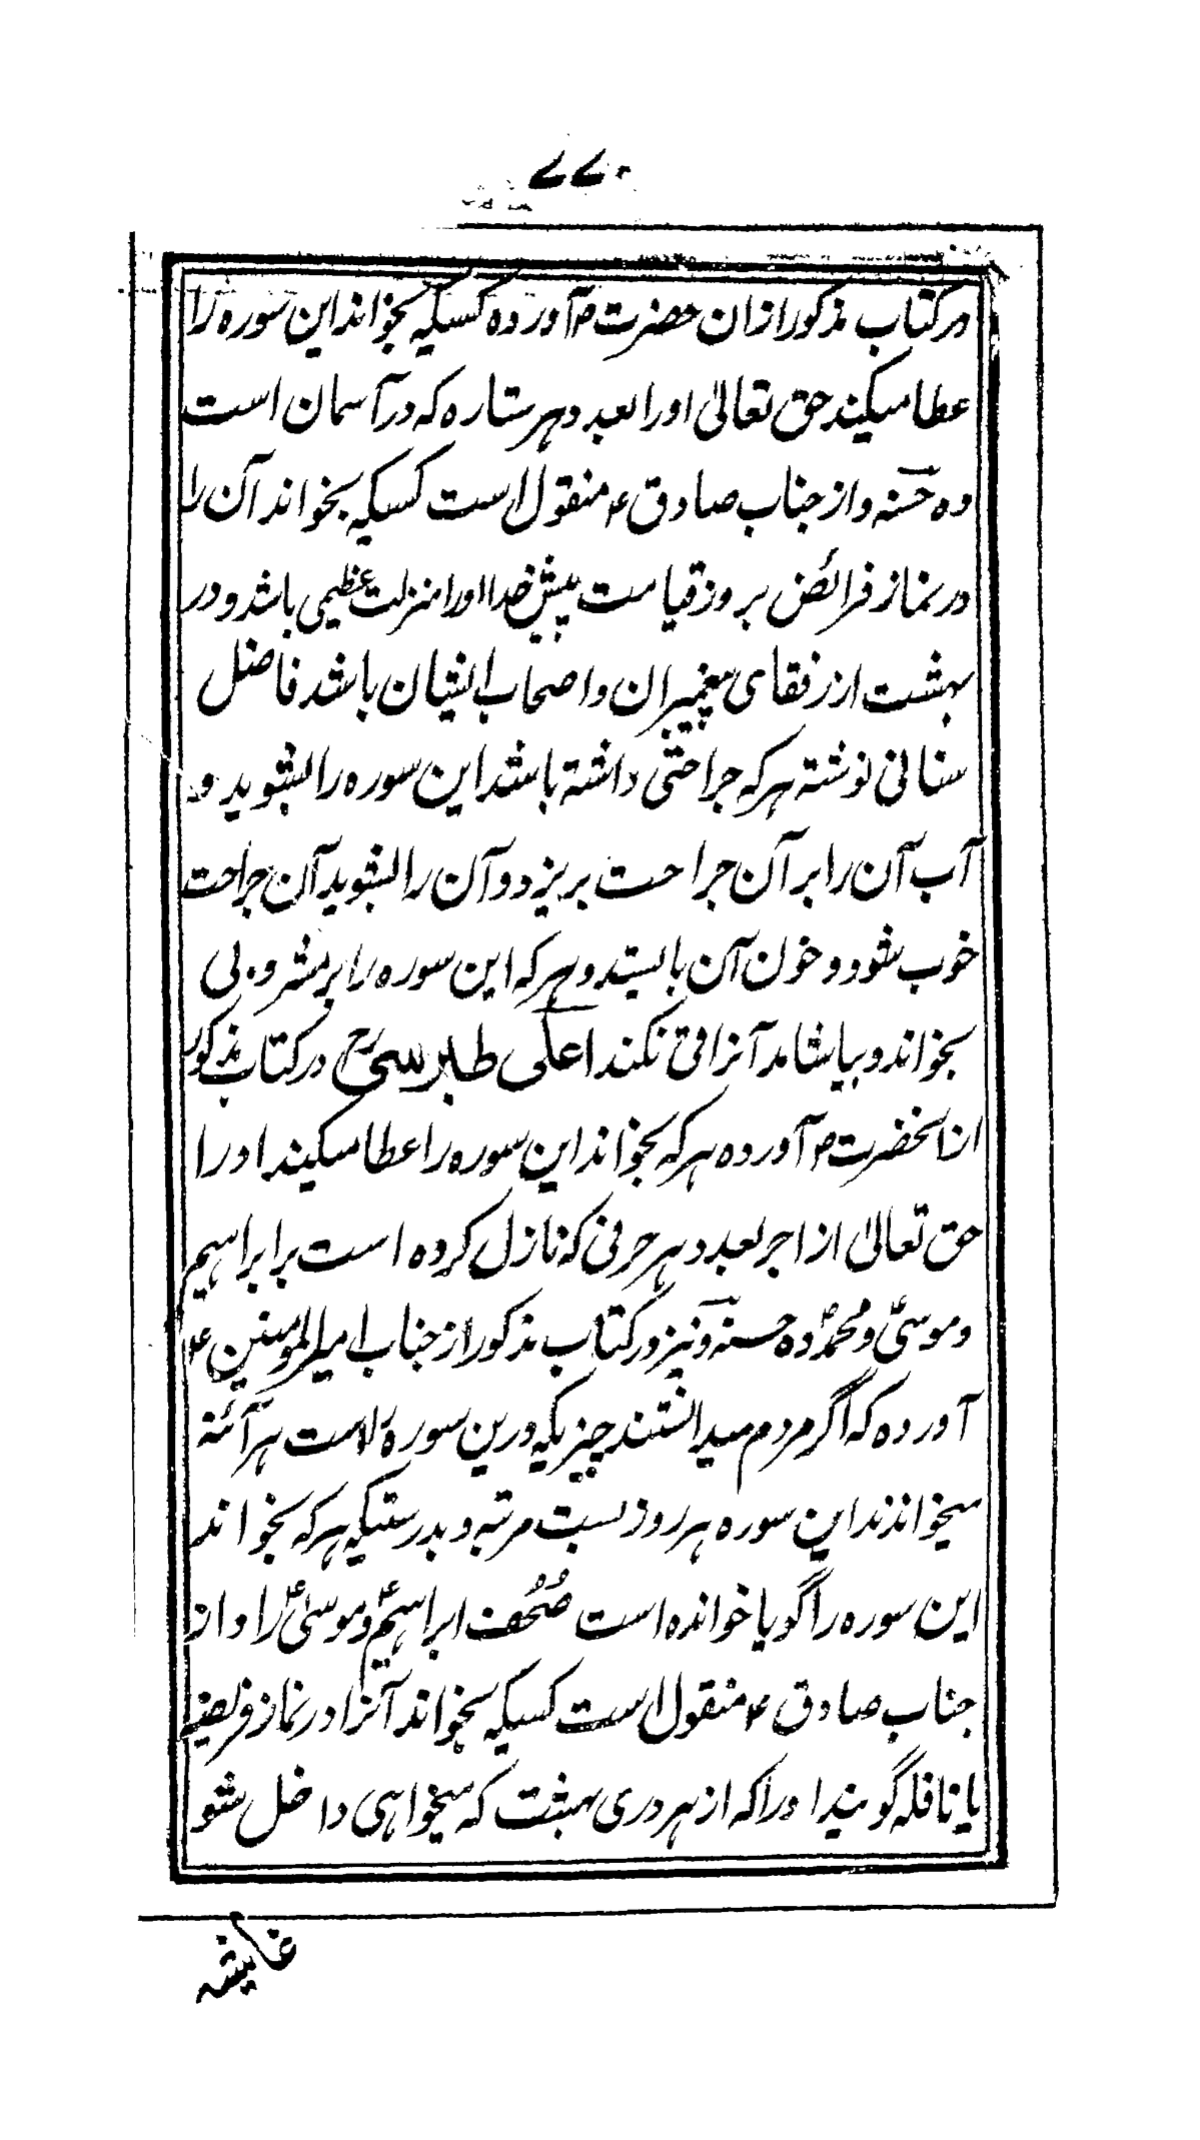 ۷۷۰
در کتاب مذکور ازان حضرت ص آورده کسیکه بخواند این سوره را
عطا میکند حق تعالیٰ او را بعدد هر ستاره که در آسمان است
ده حسنه و از جناب صادق ع منقول است کسیکه بخواند آن را
در نماز فرائض بروز قیامت پیش خدا او را منزلت عظیمی باشد و در
بهشت از رفقای پیغمبران و اصحاب ایشان باشد فاضل
سنائی نوشته هرکه جراحتی داشته باشد این سوره را بشوید و
آب آن را بر آن جراحت بریزد و آن را بشوید آن جراحت
خوب شود و خون آن بایستد و هرکه این سوره را بر مشروبی
بخواند و بیاشامد آنرا قی نکند اعلی طبرسی رح در کتاب مذکور
از آنحضرت ص آورده هرکه بخواند این سوره را عطا میکند او را
حق تعالیٰ از اجر بعدد هر حرفی که نازل کرده است بر ابراهیم
و موسیٰ و محمد ده حسنه و نیز در کتاب مذکور از جناب امیرالمومنین ع
آورده که اگر مردم میدانستند چیزیکه درین سوره است هر آئنه
میخواندند این سوره هر روز بست مرتبه و بدرستیکه هرکه بخواند
این سوره را گویا خوانده است صُحُف ابراهیم ع و موسیٰ ع را و از
جناب صادق ع منقول است کسیکه بخواند آنرا در نماز فریضه
یا نافله گویند او را که از هر دری بهشت که میخواهی داخل شو
غاشیه